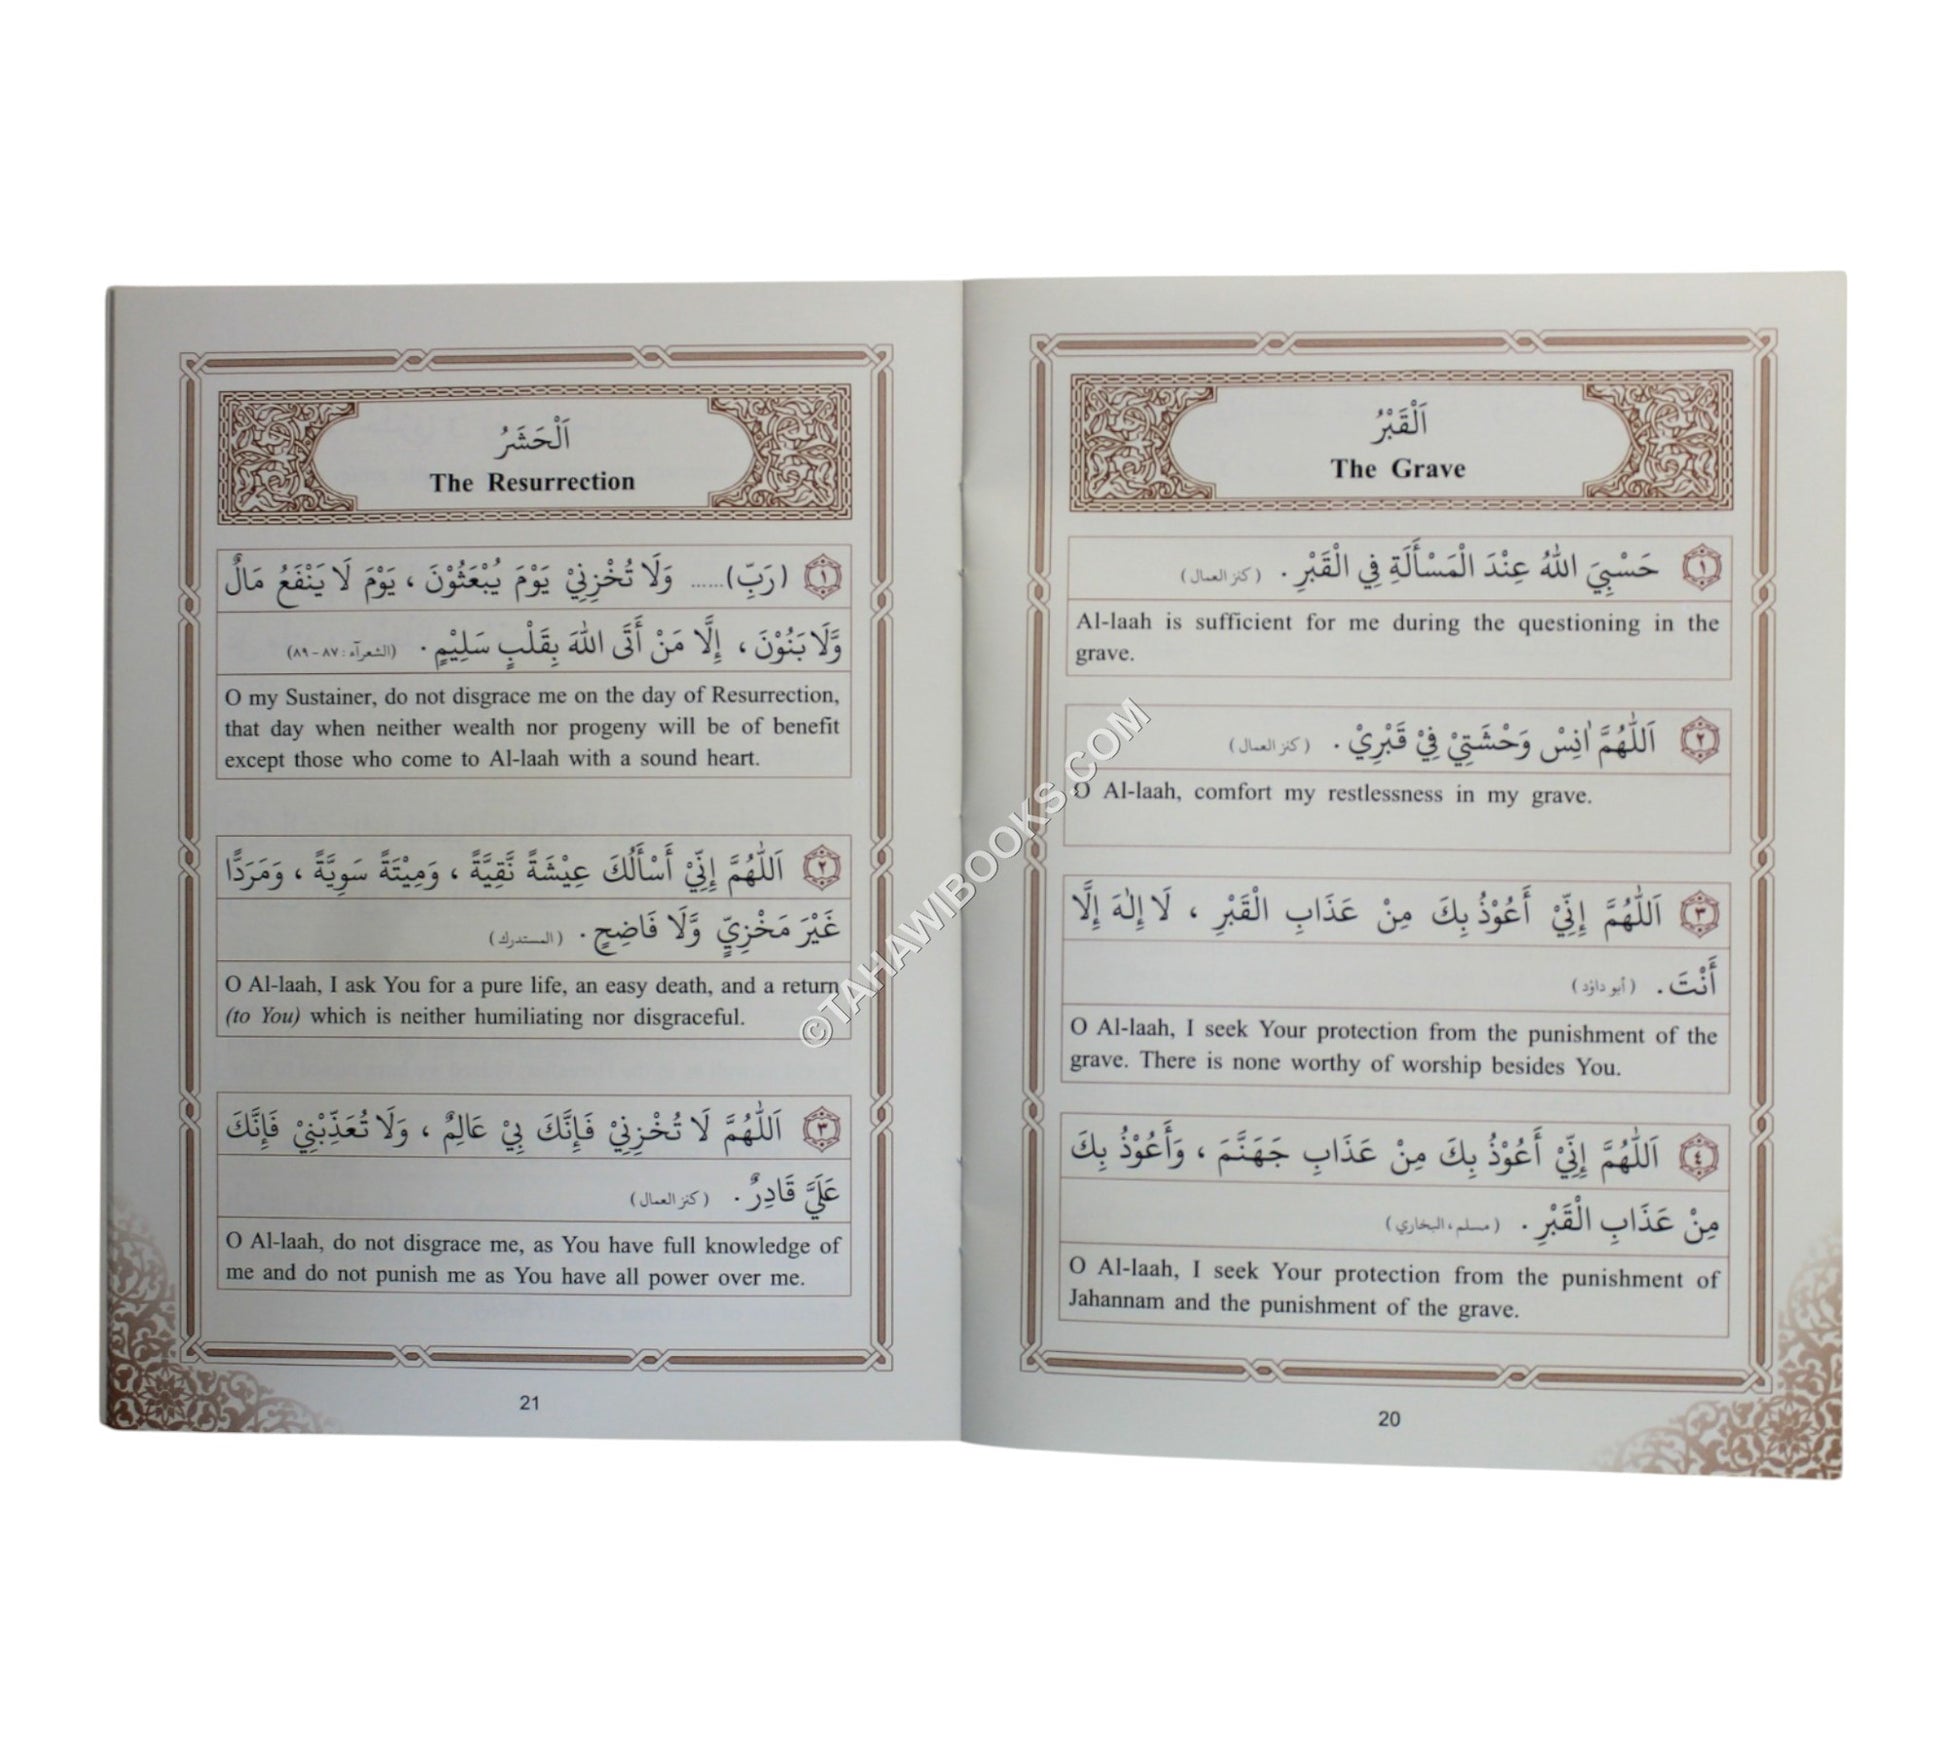 اَلْقَبْرُ
The Grave
١ حَسْبِيَ اللهُ عِنْدَ الْمَسْأَلَةِ فِي الْقَبْرِ . (كنز العمال)
Al-laah is sufficient for me during the questioning in the
grave.
٢ اَللّٰهُمَّ اٰنِسْ وَحْشَتِيْ فِيْ قَبْرِيْ . (كنز العمال)
O Al-laah, comfort my restlessness in my grave.
٣ اَللّٰهُمَّ إِنِّيْ أَعُوْذُ بِكَ مِنْ عَذَابِ الْقَبْرِ ، لَا إِلٰهَ إِلَّا
أَنْتَ . (أبو داؤد)
O Al-laah, I seek Your protection from the punishment of the
grave. There is none worthy of worship besides You.
٤ اَللّٰهُمَّ إِنِّيْ أَعُوْذُ بِكَ مِنْ عَذَابِ جَهَنَّمَ ، وَأَعُوْذُ بِكَ
مِنْ عَذَابِ الْقَبْرِ . (مسلم، البخاري)
O Al-laah, I seek Your protection from the punishment of
Jahannam and the punishment of the grave.
20
اَلْحَشَرُ
The Resurrection
١ (رَبِّ) ...... وَلَا تُخْزِنِيْ يَوْمَ يُبْعَثُوْنَ ، يَوْمَ لَا يَنْفَعُ مَالٌ
وَّلَا بَنُوْنَ ، إِلَّا مَنْ أَتَى اللهَ بِقَلْبٍ سَلِيْمٍ . (الشعرآء : ٨٧ - ٨٩)
O my Sustainer, do not disgrace me on the day of Resurrection,
that day when neither wealth nor progeny will be of benefit
except those who come to Al-laah with a sound heart.
٢ اَللّٰهُمَّ إِنِّيْ أَسْأَلُكَ عِيْشَةً نَّقِيَّةً ، وَمِيْتَةً سَوِيَّةً ، وَمَرَدًّا
غَيْرَ مَخْزِيٍّ وَّلَا فَاضِحٍ . (المستدرك)
O Al-laah, I ask You for a pure life, an easy death, and a return
(to You) which is neither humiliating nor disgraceful.
٣ اَللّٰهُمَّ لَا تُخْزِنِيْ فَإِنَّكَ بِيْ عَالِمٌ ، وَلَا تُعَذِّبْنِيْ فَإِنَّكَ
عَلَيَّ قَادِرٌ . (كنز العمال)
O Al-laah, do not disgrace me, as You have full knowledge of
me and do not punish me as You have all power over me.
21
©TAHAWIBOOKS.COM